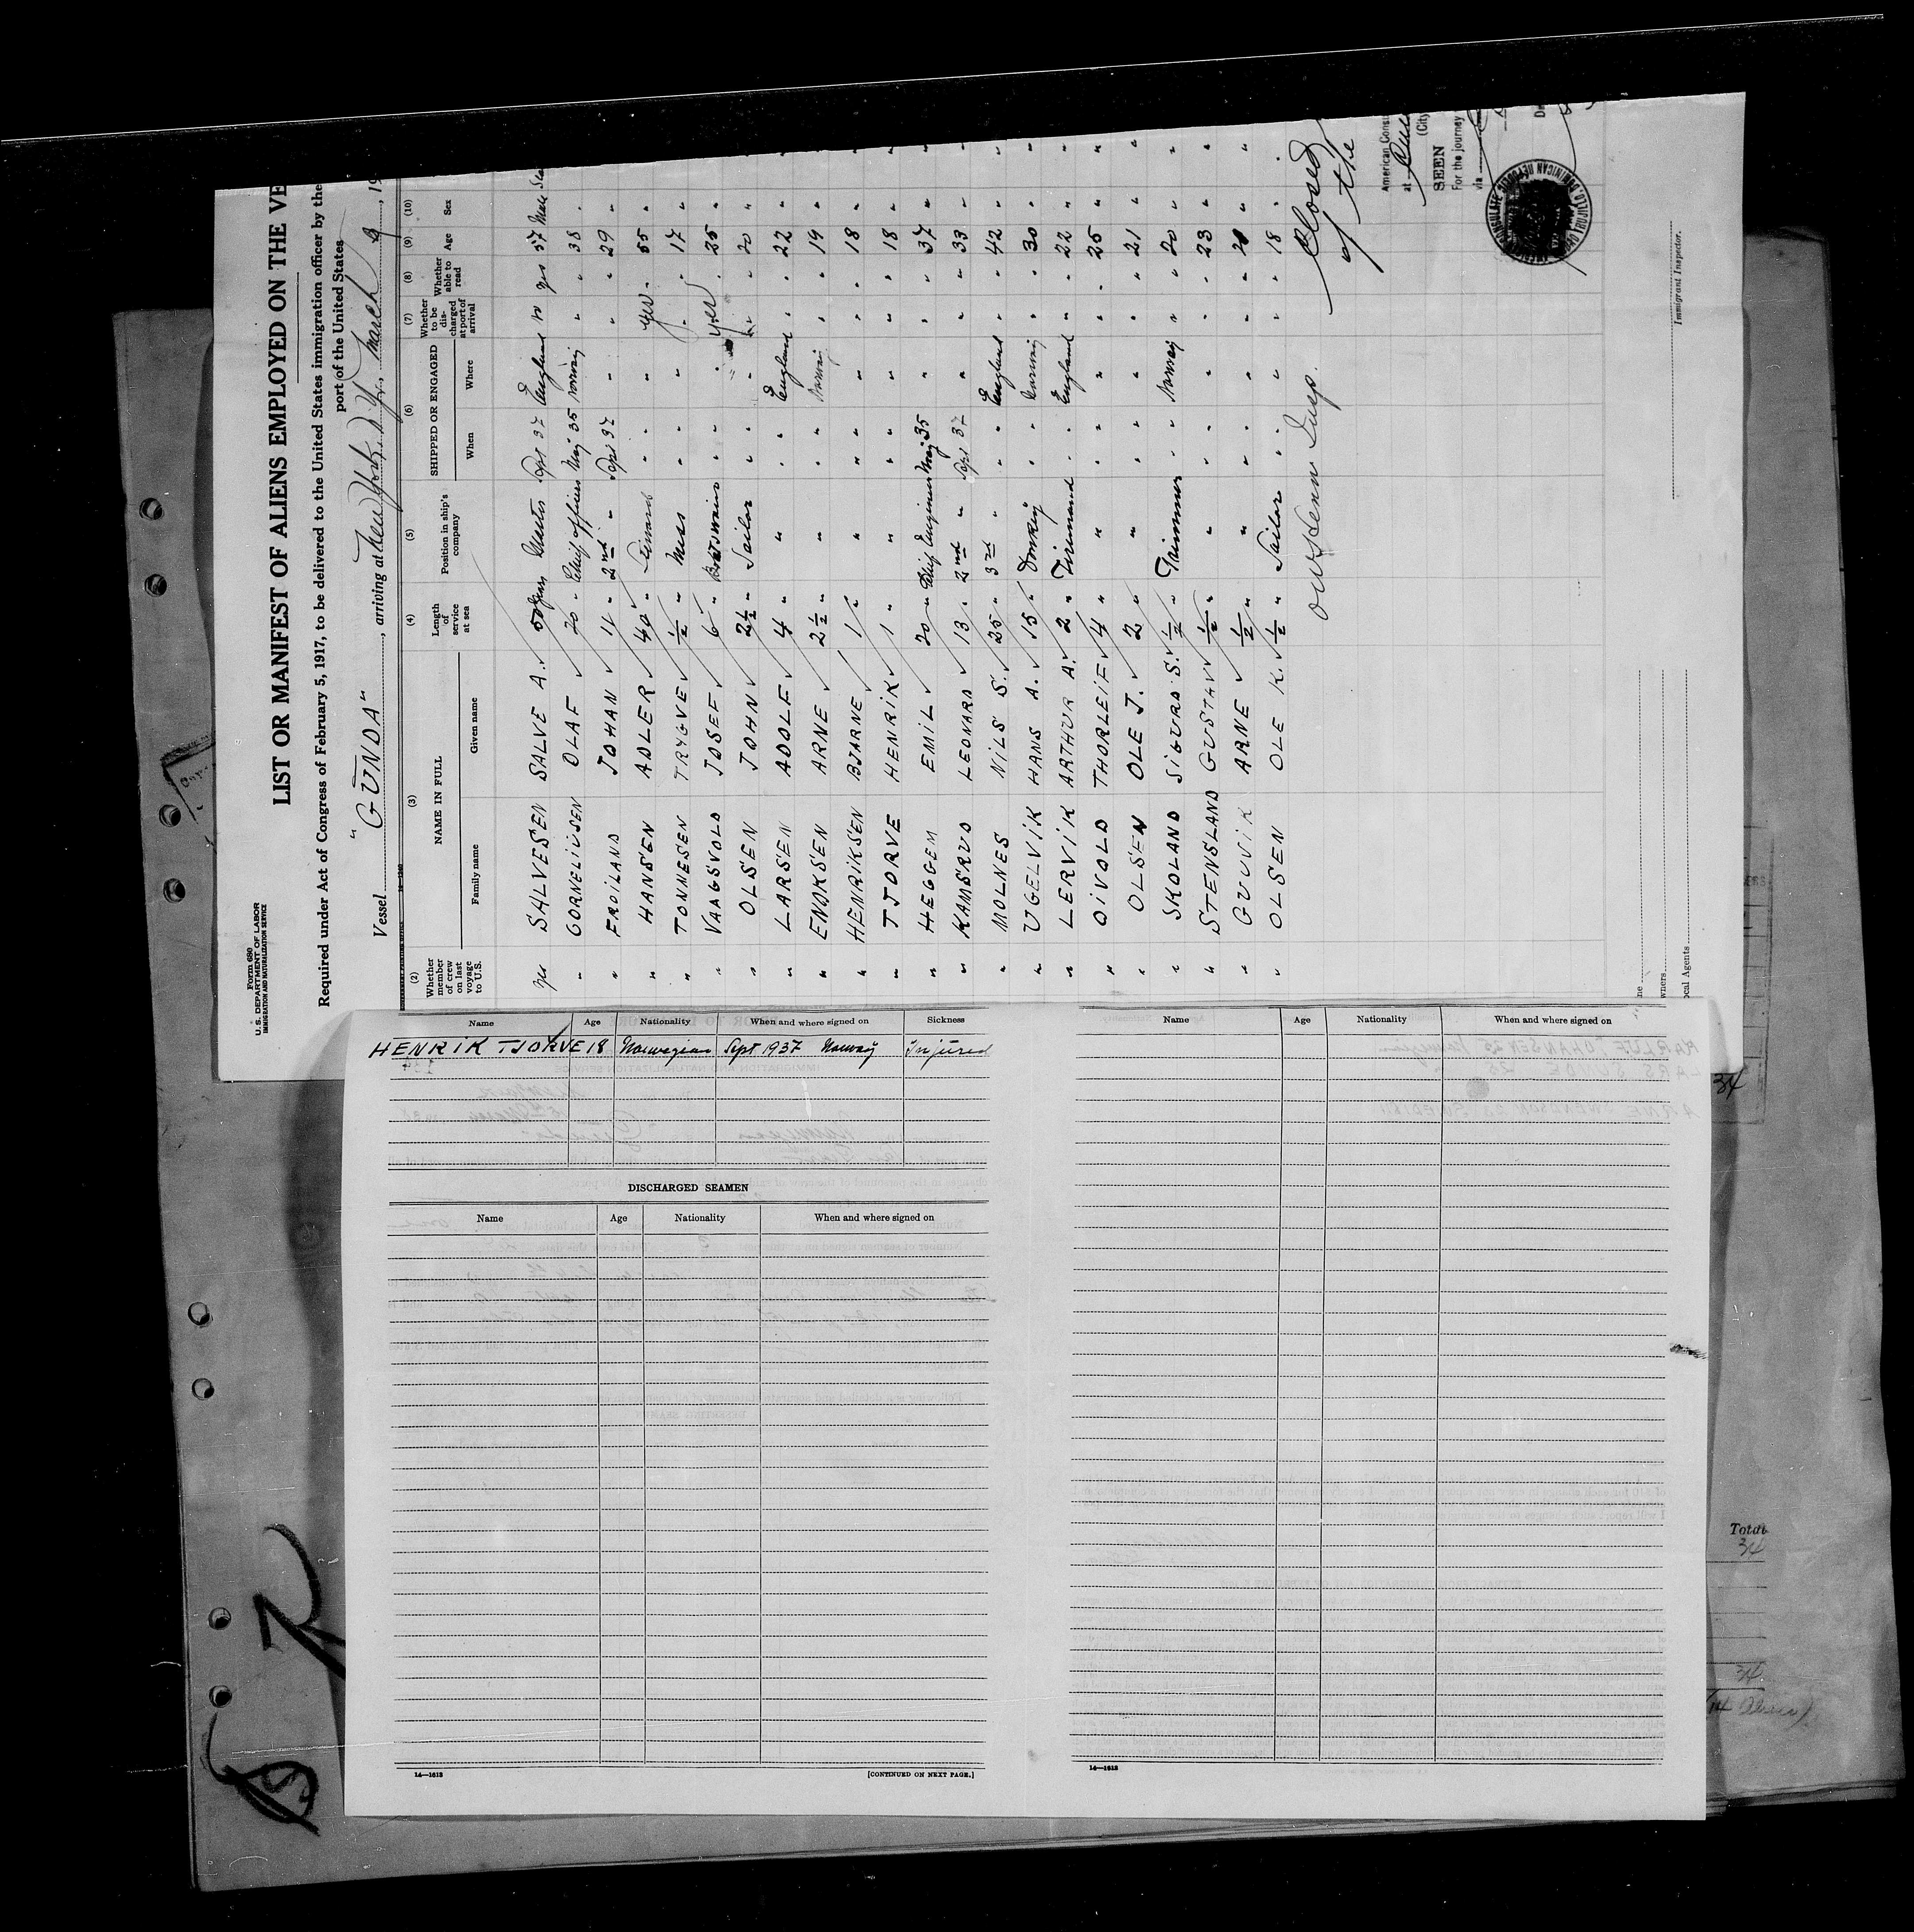 Form 680
U. S. DEPARTMENT OF LABOR
IMMIGRATION AND NATURALIZATION SERVICE
LIST OR MANIFEST OF ALIENS EMPLOYED ON THE VE
Required under Act of Congress of February 5, 1917, to be delivered to the United States immigration officer by the
port of the United States
Vessel "GUNDA", arriving at New York, N.Y. March 9, 19
(2) (3) (4) (5) (6) (7) (8) (9) (10)
Whether member of crew on last voyage to U.S. NAME IN FULL Family name Given name Length of service at sea Position in ship's company SHIPPED OR ENGAGED When Where Whether to be discharged at port of arrival Whether able to read Age Sex
yes SALVESEN SALVE A. 50 years Master Sept 37 England no yes 57 Male
" CORNELIUSEN OLAF 20 " Chief officer May 35 Norway " " 38 "
" FROILAND JOHAN 11 " 2nd " Sept 37 " " " 29 "
" HANSEN ADLER 40 " Steward " " yes " 55 "
" TONNESEN TRYGVE 1/2 " Mess " " " " 17 "
" VAAGSVOLD JOSEF 6 " Boatswain " " yes " 25 "
" OLSEN JOHN 2 1/2 " Sailor " " " " 20 "
" LARSEN ADOLF 4 " " " England " " 22 "
" ENOKSEN ARNE 2 1/2 " " " Norway " " 19 "
" HENRIKSEN BJARNE 1 " " " " " " 18 "
" TJORVE HENRIK 1 " " " " " " 18 "
" HEGGEM EMIL 20 " Chief Engineer May 35 " " " 37 "
" KAMSRUD LEONARD 13 " 2nd " Sept 37 " " " 33 "
" MOLNES NILS S. 25 " 3rd " " England " " 42 "
" UGELVIK HANS A. 15 " Donkey " Norway " " 30 "
" LERVIK ARTHUR A. 2 " Fireman " England " " 22 "
" OIVOLD THORLEIF 4 " " " " " " 25 "
" OLSEN OLE J. 2 " " " " " " 21 "
" SKOLAND SIGURD S. 1/2 " Trimmer " Norway " " 20 "
" STENSLAND GUSTAV 1/2 " " " " " " 23 "
" GUUVIK ARNE 1/2 " " " " " " 20 "
" OLSEN OLE K. 1/2 " Sailor " " " " 18 "
Closed
of the
American Cons
at
(City
SEEN
For the journey
via
Immigrant Inspector.
wners
ocal Agents
Name Age Nationality When and where signed on Sickness
HENRIK TJORVE 18 Norwegian Sept 1937 Norway Injured
DISCHARGED SEAMEN
Name Age Nationality When and where signed on
14—1613 [CONTINUED ON NEXT PAGE.]
Name Age Nationality When and where signed on
14—1613
34
Total
34
34